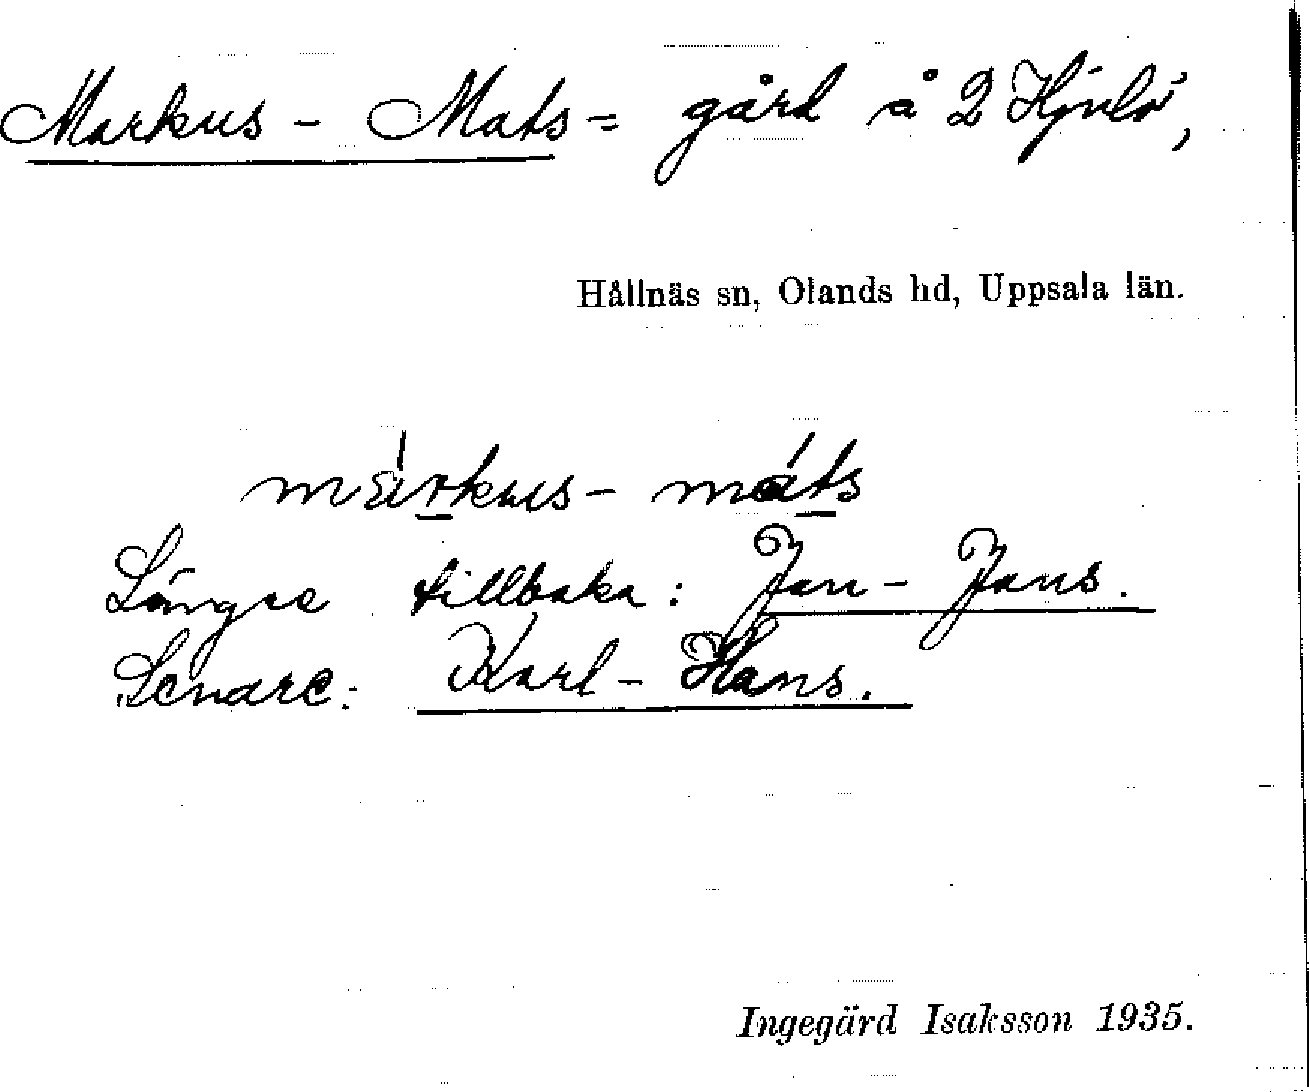 Markus - Mats = gård å 2 Hjälö,
Hållnäs sn, Olands hd, Uppsala län.
märkus - máts
Längre tillbaka : Jan - Jans.
Senare: Karl - Hans.
Ingegärd Isaksson 1935.